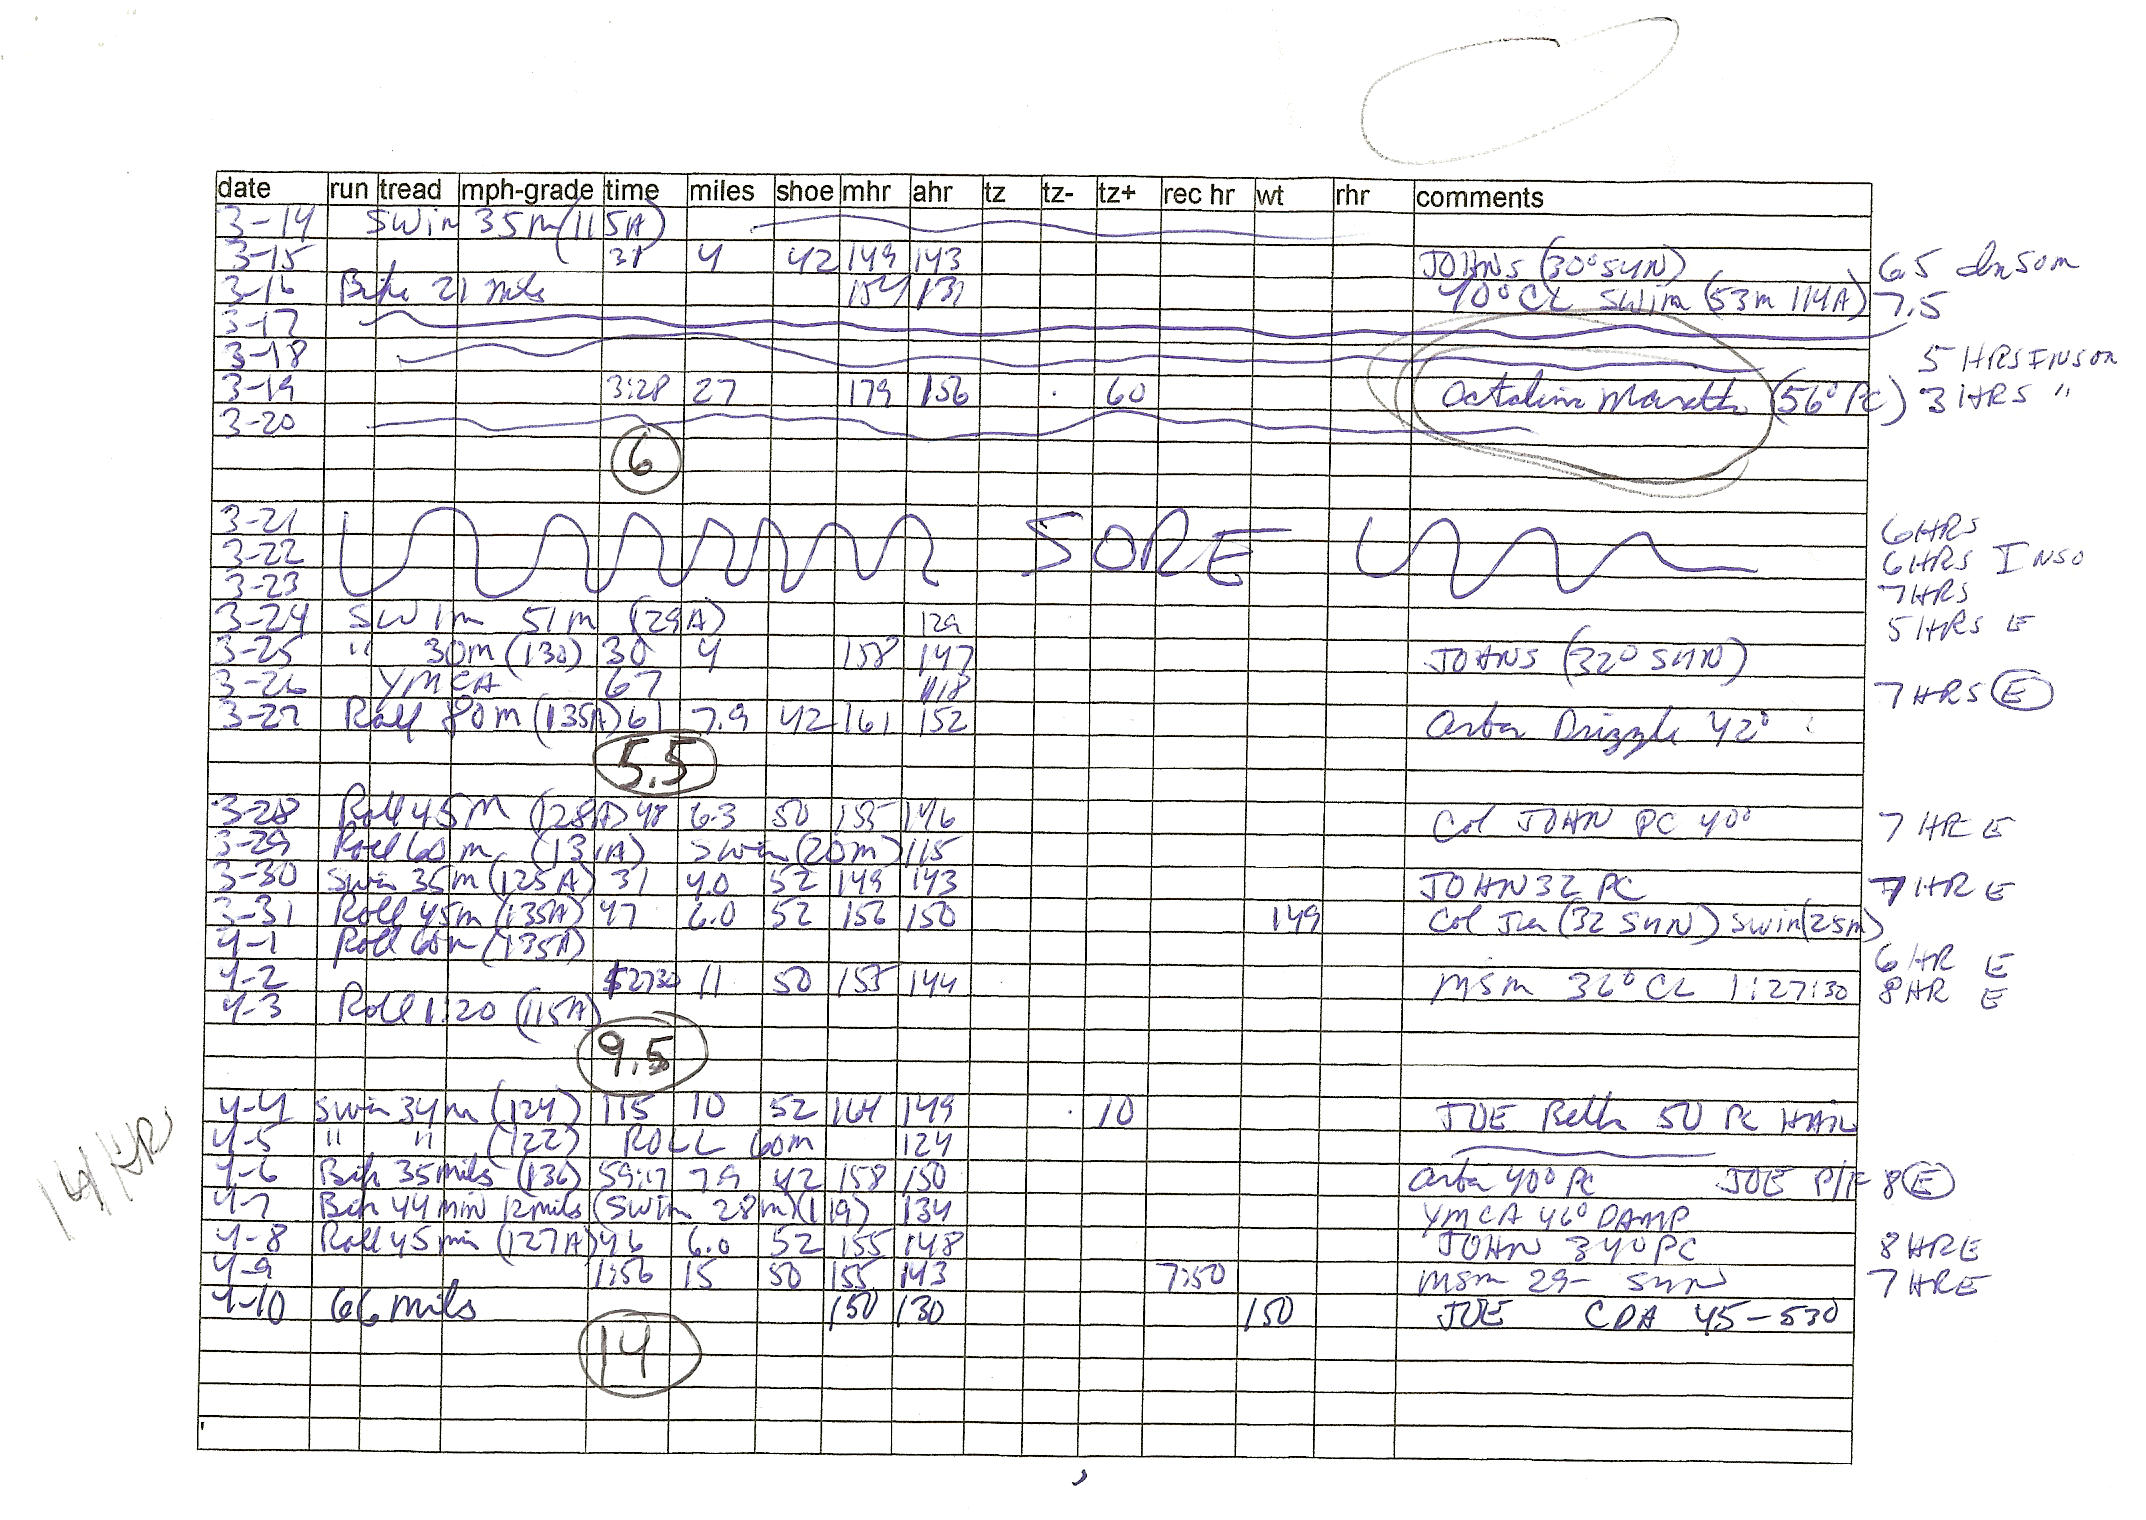 date run tread mph-grade time miles shoe mhr ahr tz tz- tz+ rec hr wt rhr comments
3-14 Swim 35m (115A)
3-15 31 4 42 149 143 JOHNS (30° SUN) 6.5 Insom
3-16 Bike 21 miles 154 131 40° CL Swim (53m 114A) 7.5
3-17
3-18 5 HRS INSOM
3-19 3:28 27 179 156 60 Catalina Marath (56° PC) 3 HRS "
3-20
6
3-21 6 HRS
3-22 SORE 6 HRS INSO
3-23 7 HRS
3-24 Swim 51m (129A) 129 5 HRS E
3-25 " 30m (130) 30 4 158 147 JOHNS (32° SUN)
3-26 YMCA 67 118 7 HRS E
3-27 Roll 80m (135A) 61 7.9 42 161 152 Arbor Drizzle 42°
5.5
3-28 Roll 45m (128A) 48 6.3 50 155 146 Col JOHN PC 40° 7 HR E
3-29 Roll 60m (131A) Swim (20m) 115
3-30 Swim 35m (125A) 31 4.0 52 149 143 JOHN 32 PC 7 HR E
3-31 Roll 45m (135A) 47 6.0 52 156 150 149 Col (32 SUN) Swim (25m)
4-1 Roll 60m (135A) 6 HR E
4-2 11 50 155 144 MSM 32° CL 1:27:30 8 HR E
4-3 Roll 1:20 (115A)
9.5
4-4 Swim 34m (124) 115 10 52 164 149 10 JOE 50 PC HAIL
14 HRS
4-5 " " (122) ROLL 60m 124
4-6 Bike 35 miles (136) 59:17 7.9 42 158 150 Arbor 40° PC JOE P/F 8 E
4-7 Bike 44 min 12 miles (Swim 28m) (119) 134 YMCA 46° DAMP
4-8 Roll 45 min (127A) 46 6.0 52 155 148 JOHN 34° PC 8 HR E
4-9 1:56 15 50 155 143 7:50 MSM 29- SUN 7 HR E
4-10 66 miles 150 130 150 JOE CDA 45-530
14